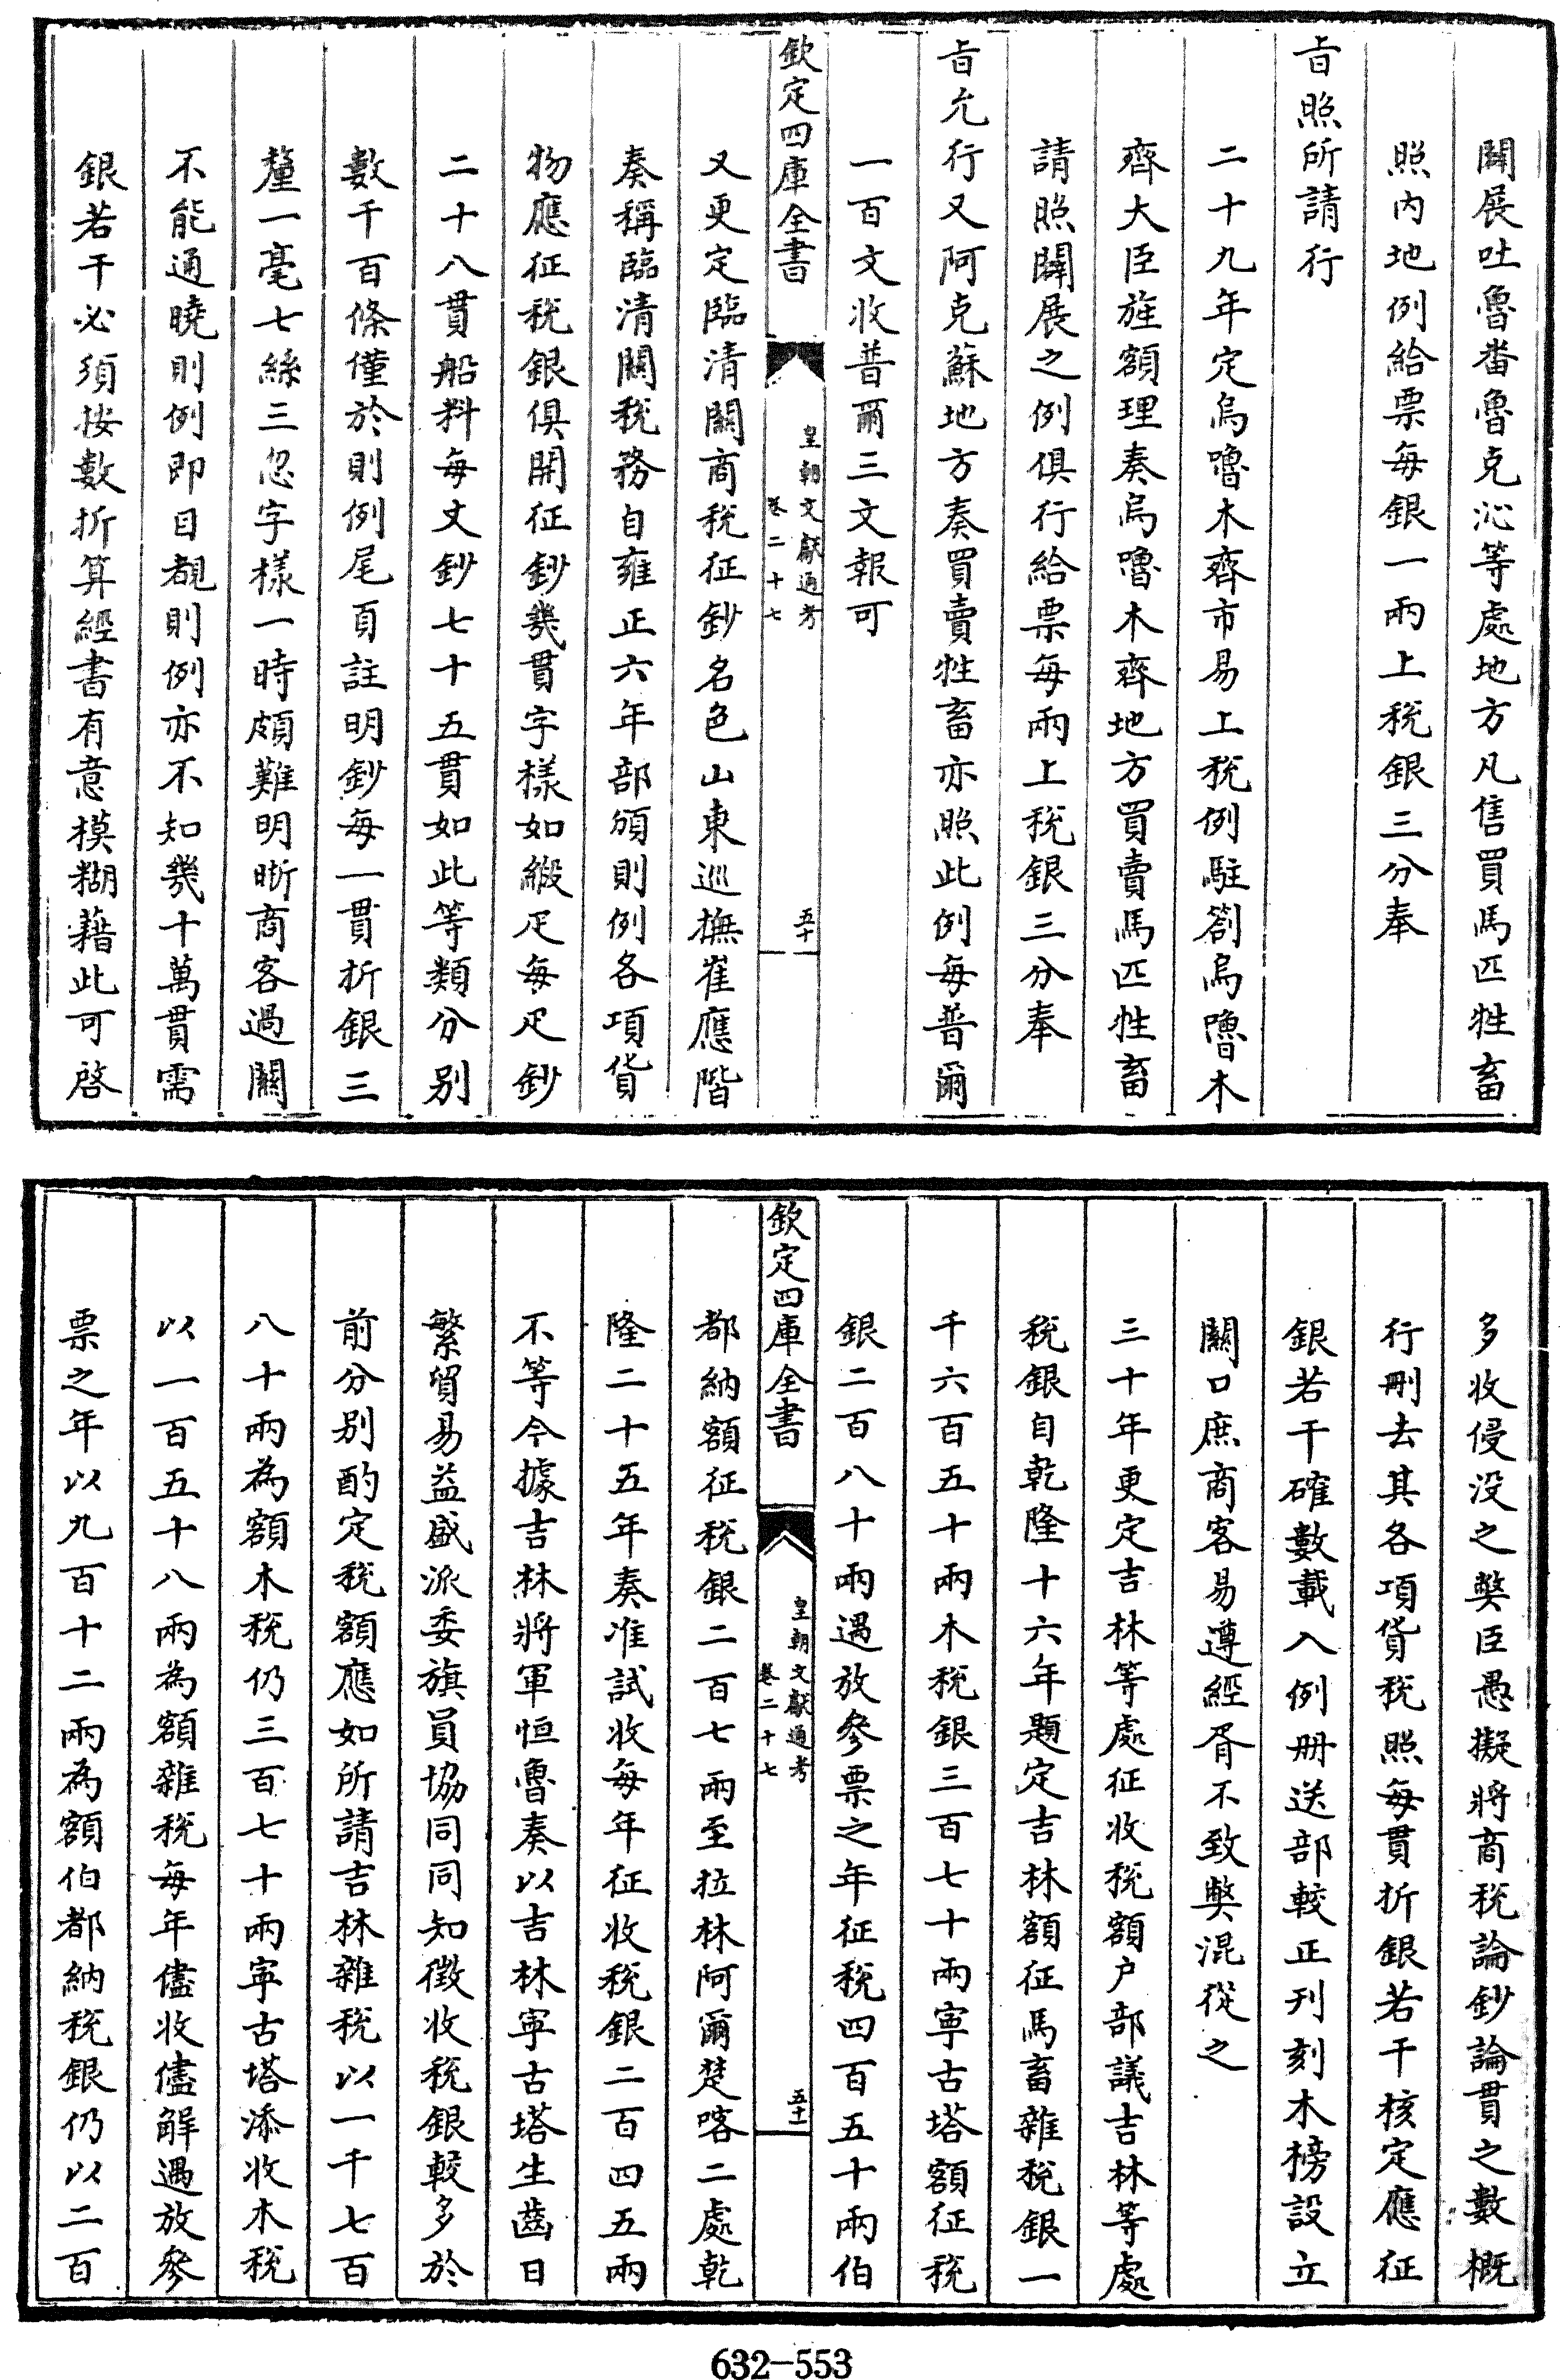 闢展吐魯番魯克沁等處地方凡售買馬匹牲畜
照内地例給票每銀一兩上稅銀三分奉
㫖照所請行
二十九年定烏嚕木齊市易上稅例駐劄烏嚕木
齊大臣旌額理奏烏嚕木齊地方買賣馬匹牲畜
請照闢展之例俱行給票每兩上稅銀三分奉
㫖允行又阿克蘇地方奏買賣牲畜亦照此例每普爾
一百文收普爾三文報可
欽定四庫全書
皇朝文獻通考
卷二十七
五十
又更定臨清關商稅征鈔名色山東巡撫崔應階
奏稱臨清關稅務自雍正六年部頒則例各項貨
物應征稅銀俱開征鈔幾貫字様如緞疋每疋鈔
二十八貫船料每丈鈔七十五貫如此等類分别
數千百條僅於則例尾頁註明鈔每一貫折銀三
釐一毫七絲三忽字樣一時頗難明晰商客過關
不能通曉則例即目覩則例亦不知幾十萬貫需
銀若干必須按數折算經書有意模糊藉此可啓
多收侵没之獘臣愚擬將商稅論鈔論貫之數概
行刪去其各項貨稅照每貫折銀若干核定應征
銀若干確數載入例冊送部較正刊刻木榜設立
關口庶商客易遵經胥不致獘混從之
三十年更定吉林等處征收稅額户部議吉林等處
稅銀自乾隆十六年題定吉林額征馬畜雜稅銀一
千六百五十兩木稅銀三百七十兩寧古塔額征稅
銀二百八十兩遇放參票之年征稅四百五十兩伯
欽定四庫全書
皇朝文獻通考
卷二十七
五十一
都納額征稅銀二百七兩至拉林阿爾楚喀二處乾
隆二十五年奏准試收每年征收稅銀二百四五兩
不等今據吉林將軍恒魯奏以吉林寧古塔生齒日
繁貿易益盛派委旗員協同同知徵收稅銀較多於
前分别酌定稅額應如所請吉林雜稅以一千七百
八十兩為額木稅仍三百七十兩寧古塔添收木稅
以一百五十八兩為額雜稅每年儘收儘解遇放參
票之年以九百十二兩為額伯都納稅銀仍以二百
632-553